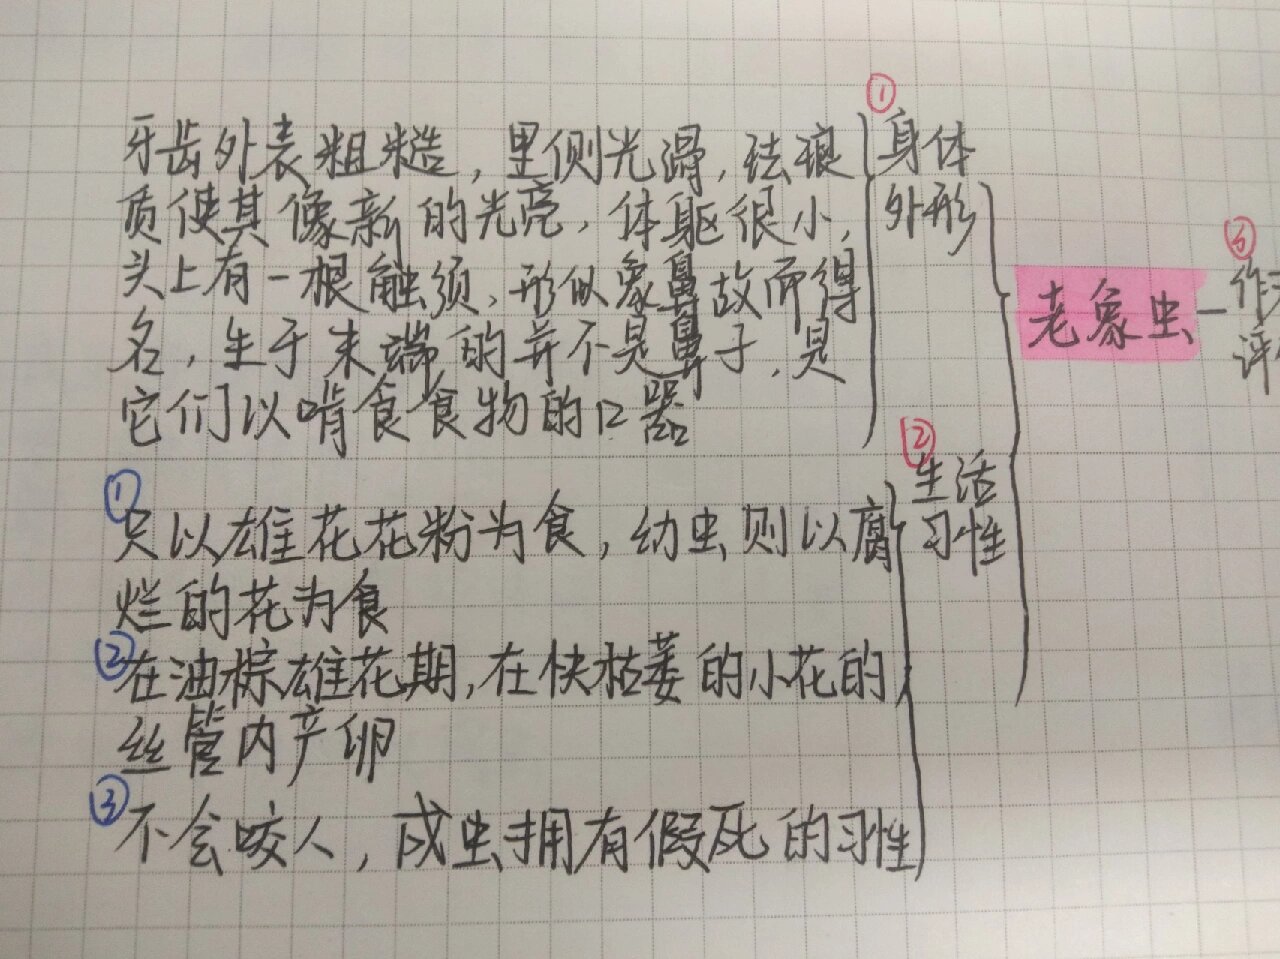 ①
身体
外形
牙齿外表粗糙，里侧光滑，珐琅
质使其像新的光亮，体躯很小，
头上有一根触须，形似象鼻故而得
名，生于末端的并不是鼻子，是
它们以啃食食物的口器
②
生活
习性
①
只以雄花花粉为食，幼虫则以腐
烂的花为食
②
在油棕雄花期，在快枯萎的小花的
丝管内产卵
③
不会咬人，成虫拥有假死的习性
老象虫
作
评